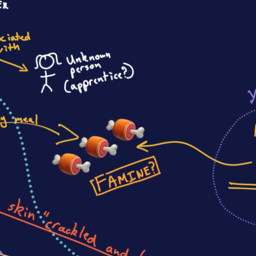 ociated
with
Unknown
person
(apprentice?)
meal
FAMINE?
skin "crackled and